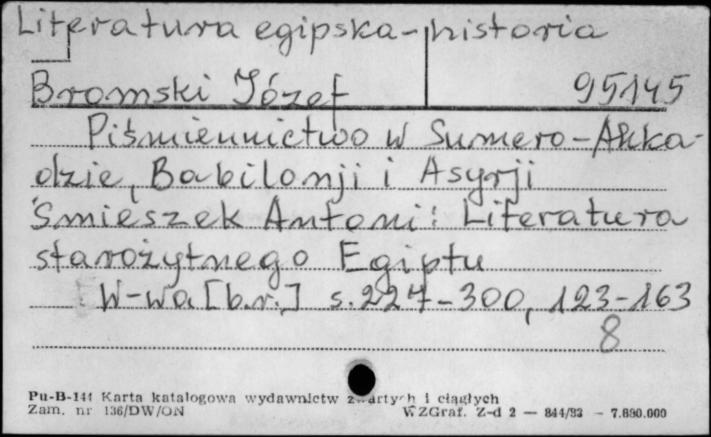 Literatura egipska - historia
Bromski Józef 95145
Piśmiennictwo w Sumero-Akka-
dzie, Babilonji i Asyrji
Śmieszek Antoni: Literatura
starożytnego Egiptu
W-wa [b.r.] s. 227-300, 123-163
8
Pu-B-141 Karta katalogowa wydawnictw zwartych i ciągłych
Zam. nr 136/DW/ON WZGraf. Z-d 2 — 844/83 - 7.890.000